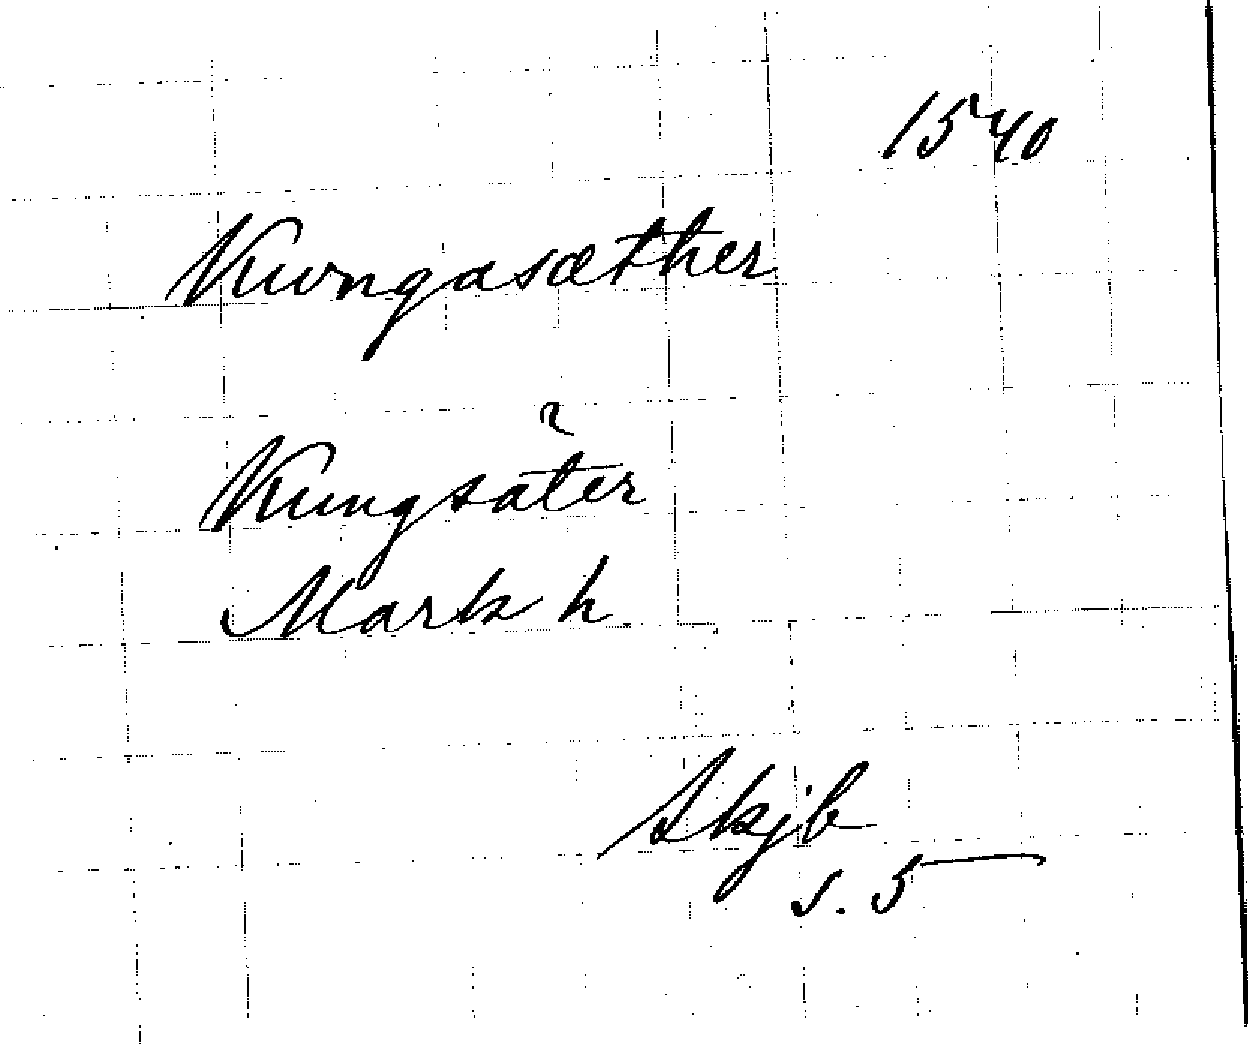 1540
Kwngasæther
Kungsäter
Mark h.
Skjb
s. 5